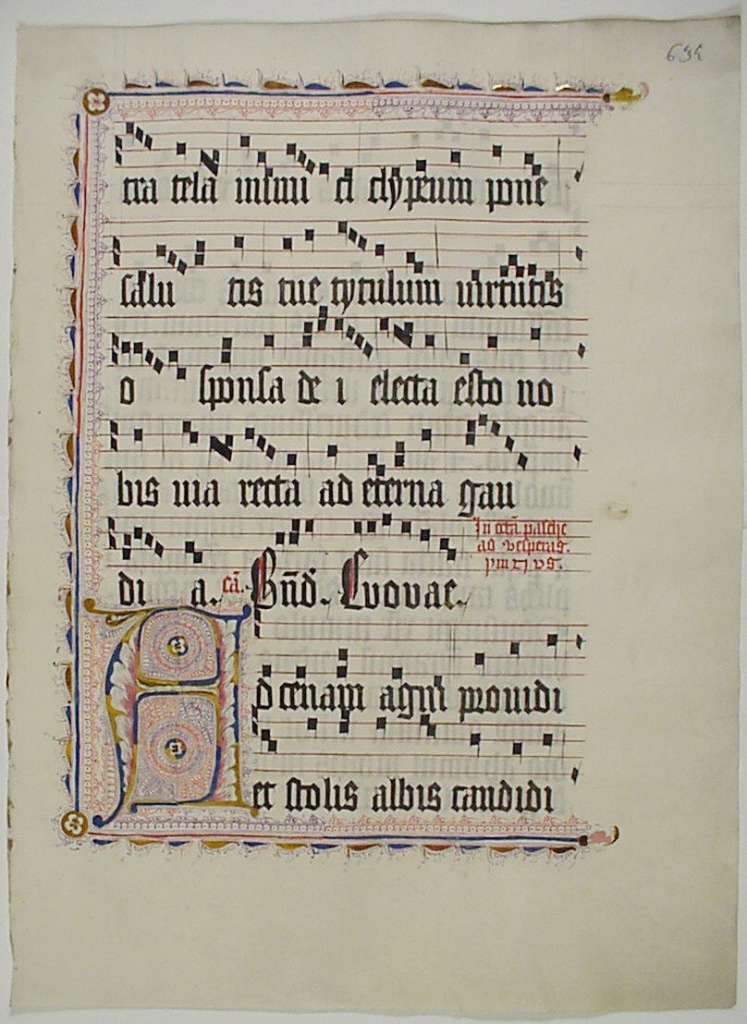 634
tra tela inimi ci clypeum pone
salu tis tue tytulum virtutis
o sponsa de i electa esto no
bis uia recta ad eterna gau
di a. cā. Bn̄d. Evovae.
In octā pasche
ad vesperas.
ymnvs.
Ad cenam agni prouidi
et stolis albis candidi